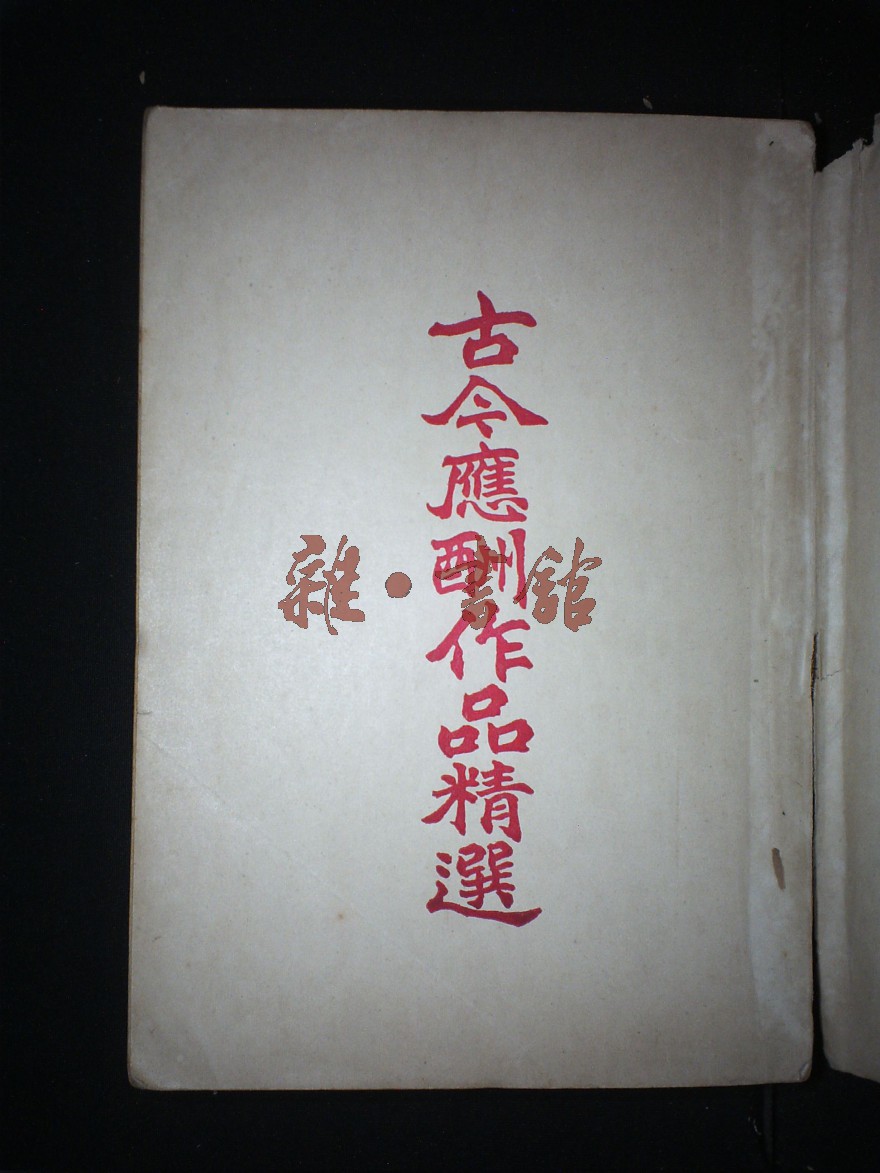 古今應酬作品精選
雜·書館